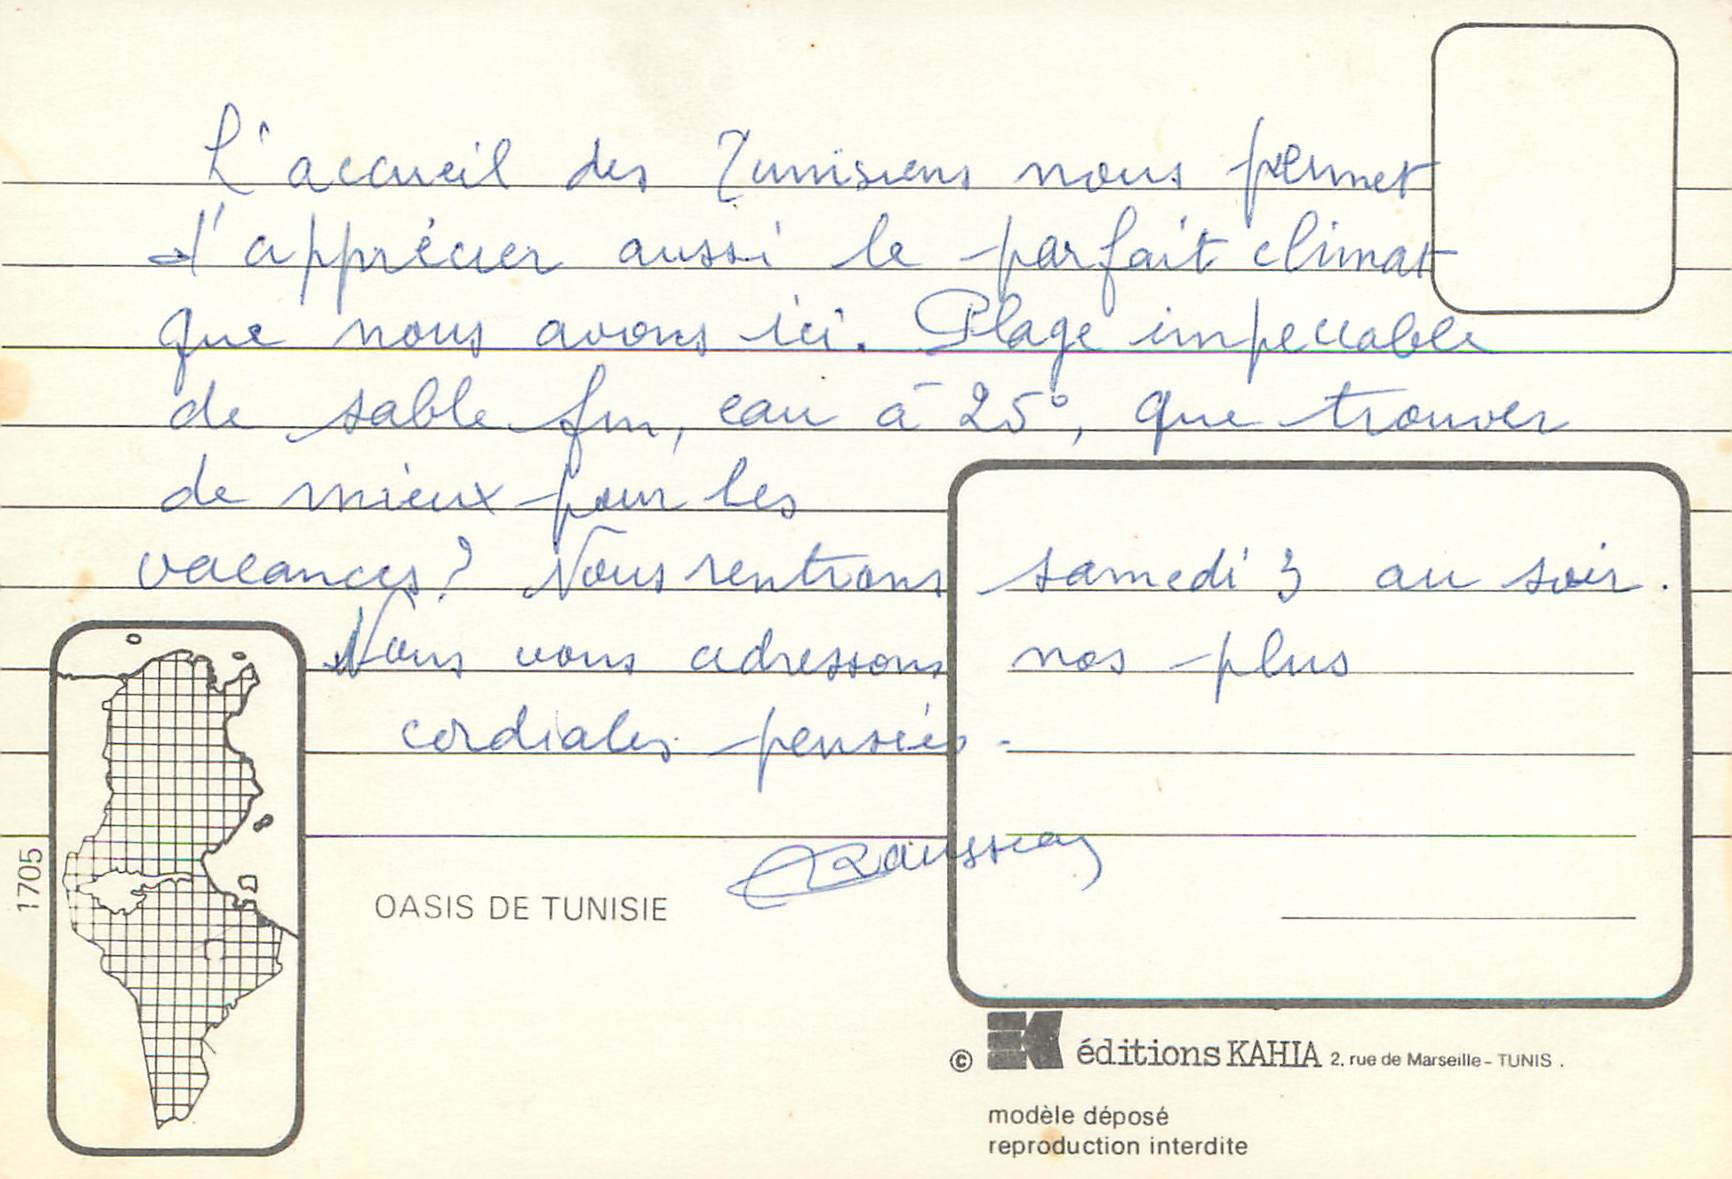 L'accueil des Tunisiens nous permet
d'apprécier aussi le parfait climat
que nous avons ici. Plage impeccable
de sable fin, eau à 25°, que trouver
de mieux pour les
vacances? Nous rentrons samedi 3 au soir.
Nous vous adressons nos plus
cordiales pensées.
1705
OASIS DE TUNISIE
© éditions KAHIA 2, rue de Marseille - TUNIS .
modèle déposé
reproduction interdite